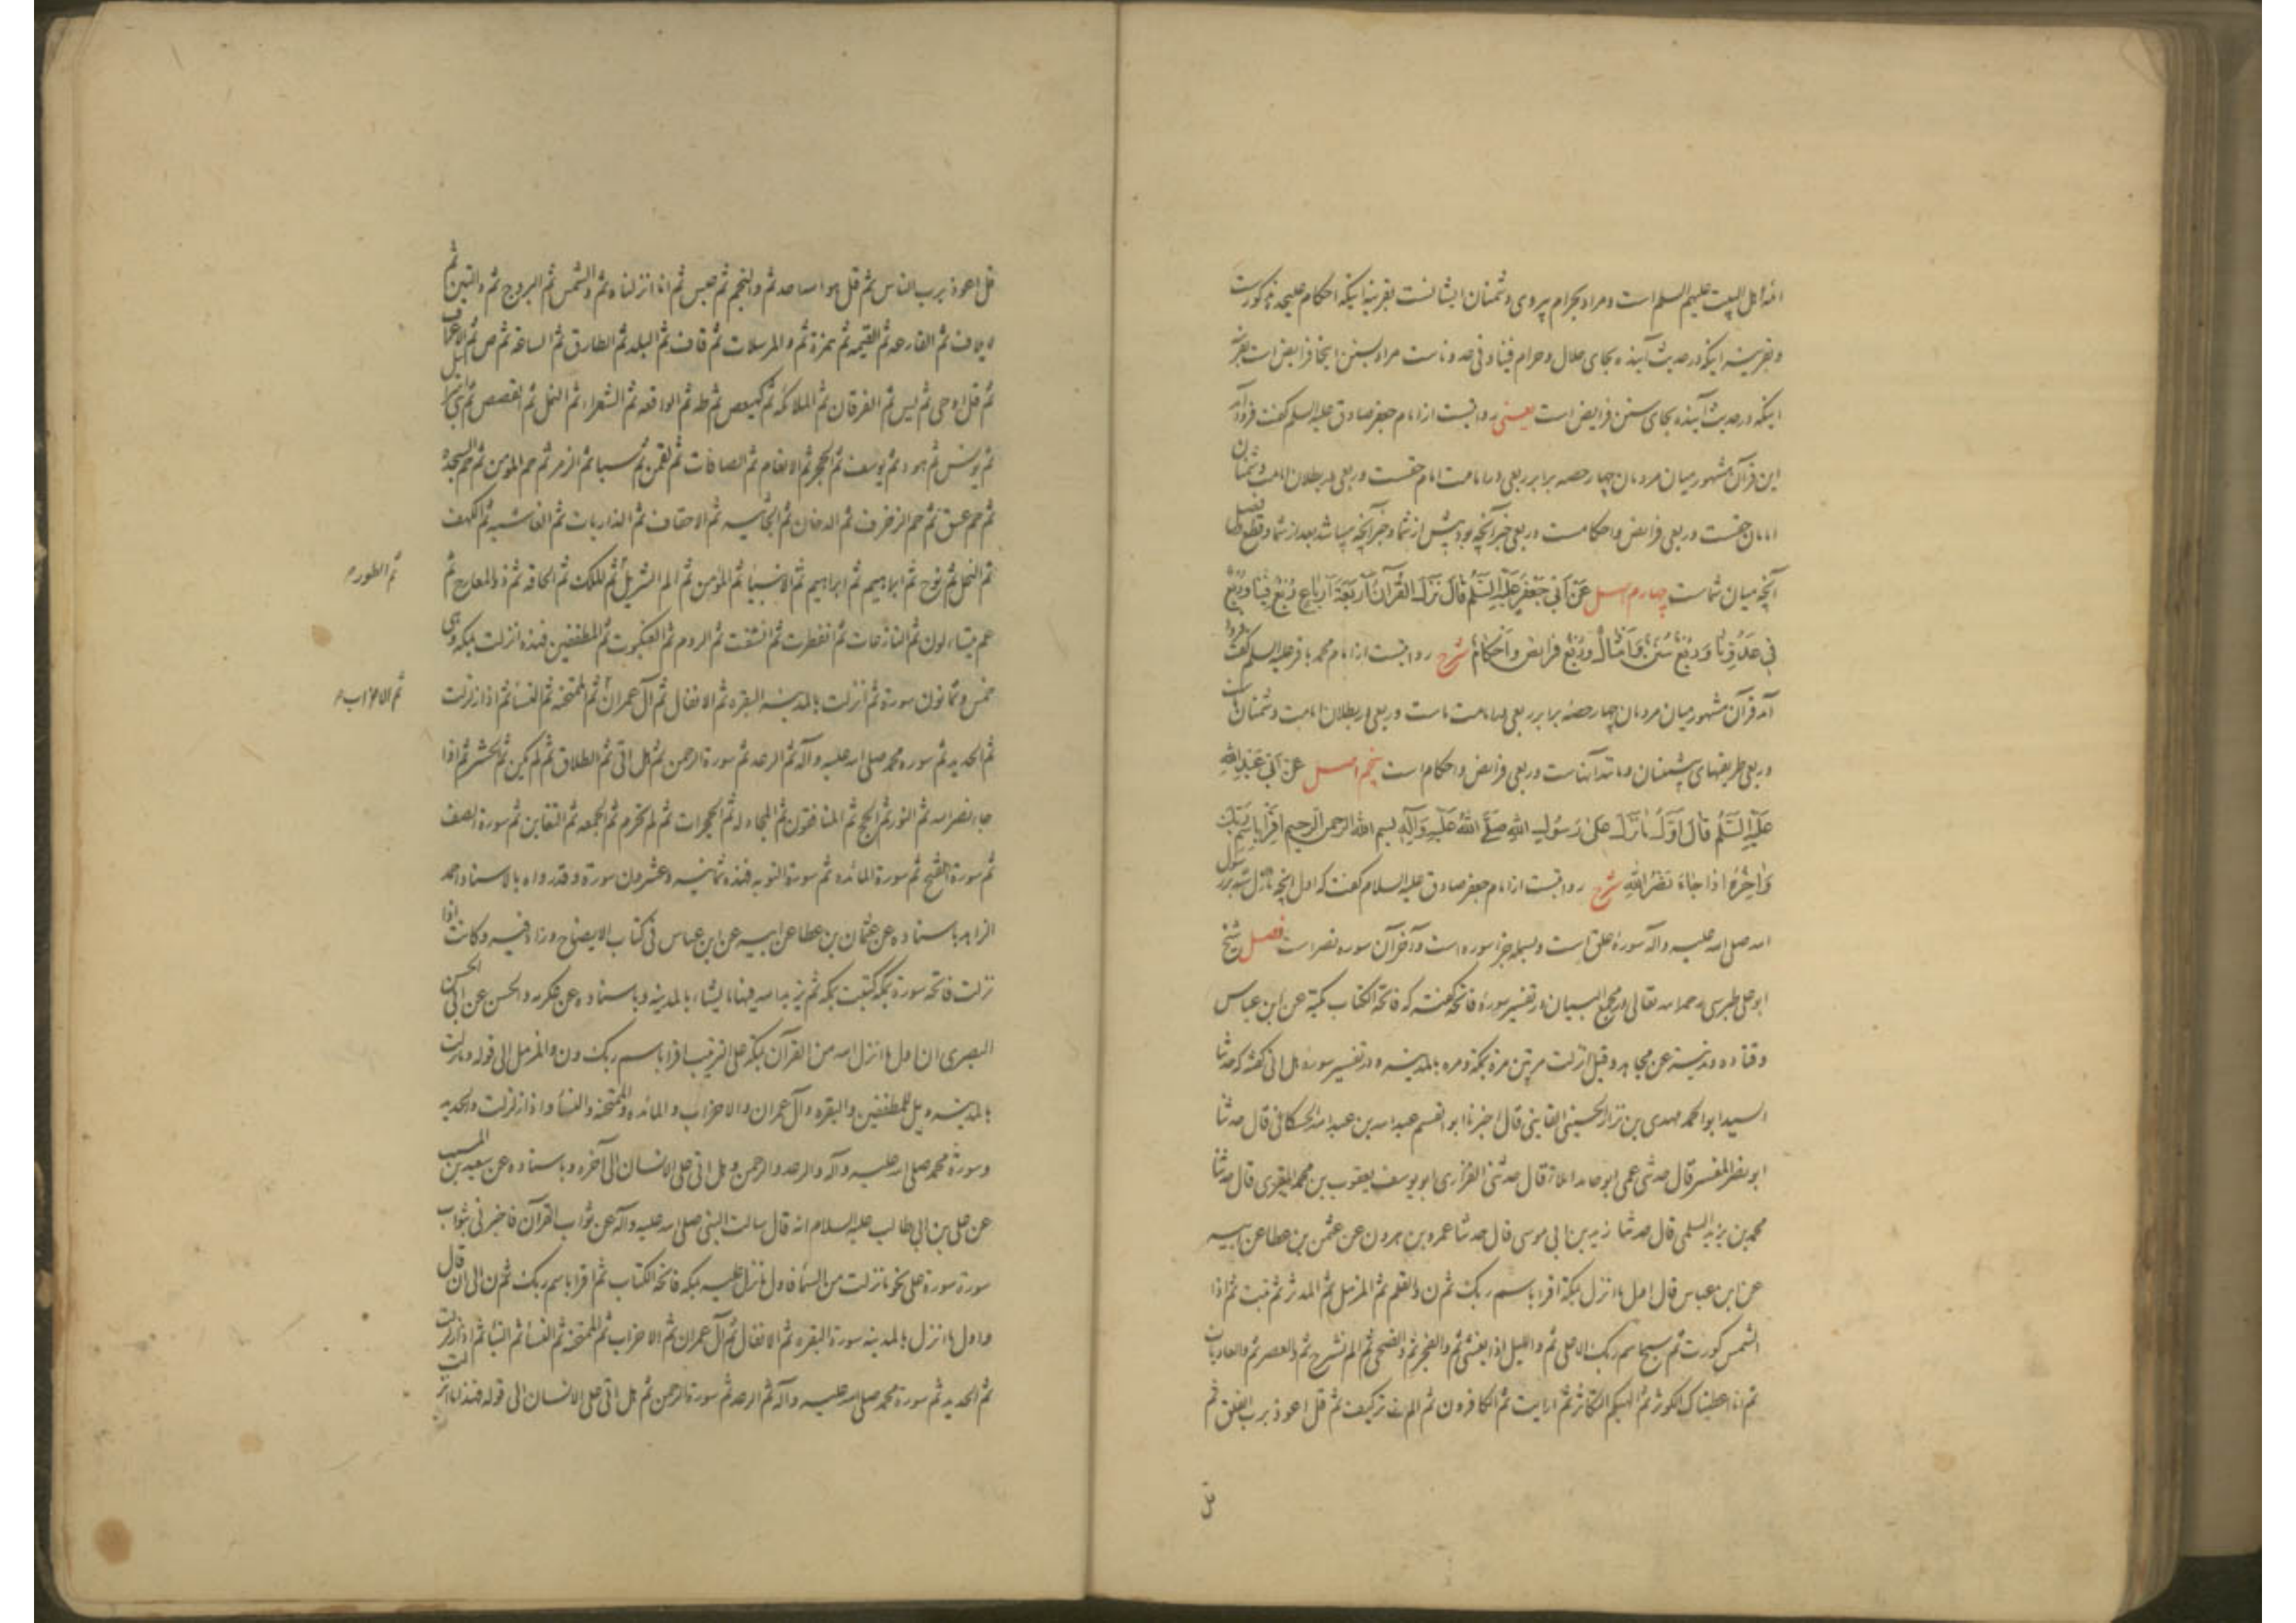 ائمهٔ اهل البیت علیهم السلم است و مراد بحرام پیروی دشمنان ایشانست بقرینهٔ اینکه احکام علیحده مذکورست
و بقرینه اینکه در حدیث آینده بجای حلال و حرام فینا و فی عدونا است مراد بسنن اینجا فرایض است بقرینه
اینکه در حدیث آینده بجای سنن فرایض است یعنی روایتست از امام جعفر صادق علیه السلم گفت فرود آمد
این قرآن مشهور میان مردمان چهار حصه برابر ربعی در امامت امام حقست و ربعی در بطلان امامت دشمنان
امامان حقست و ربعی فرایض و احکامست و ربعی خبر آنچه بود پیش از شما و خبر آنچه میباشد بعد از شما و قطع و فصل
آنچه میان شماست چهارم اصل عَنْ اَبی جَعْفَرٍ عَلَیْهِ السَّلَمُ قَالَ نَزَلَ القُرآنُ اَرْبَعَةَ اَرْبَاعٍ رُبْعٌ فِینَا وَرُبْعٌ
فِی عَدُوِّنَا وَرُبْعٌ سُنَنٌ وَاَمْثَالٌ وَرُبْعٌ فَرَایِضُ وَاَحْکَامٌ شرح روایتست از امام محمد باقر علیه السلم گفت فرود
آمد قرآن مشهور میان مردمان چهار حصهٔ برابر ربعی در امامت ماست و ربعی در بطلان امامت دشمنان ماست
و ربعی طریقهای پیشینان و مانند آنهاست و ربعی فرایض و احکام است پنجم اصل عَنْ اَبی عَبْدِ اللهِ
عَلَیْهِ السَّلَمُ قَالَ اَوَّلُ مَا نَزَلَ عَلَی رَسُولِ اللهِ صَلَّی اللهُ عَلَیْهِ وَآلِهِ بسم الله الرحمن الرحیم اِقْرَأْ بِاسْمِ رَبِّکَ
وَآخِرُهُ اِذَا جَاءَ نَصْرُ اللهِ شرح روایتست از امام جعفر صادق علیه السلام گفت که اول آنچه نازل شد بر رسول
الله صلی الله علیه و آله سورهٔ علق است و بسمله جزء سوره است و آخر آن سوره نصر است فصل شیخ
ابو علی طبرسی رحمه الله تعالی در مجمع البیان در تفسیر سورهٔ فاتحه گفته که فاتحة الکتاب مکیة عن ابن عباس
و قتاده و مدنیة عن مجاهد و قیل انزلت مرتین مرة بمکة و مره بالمدینه و در تفسیر سورهٔ هل اتی گفته که حدثنا
السید ابو الحمد مهدی بن نزار الحسینی القاینی قال اخبرنا ابو القسم عبید الله بن عبد الله الحسکانی قال حدثنا
ابو نصر المفسر قال حدثنی عمی ابو حامد املاء قال حدثنی الفزاری ابو یوسف یعقوب بن محمد المقری قال حدثنا
محمد بن یزید السلمی قال حدثنا زید بن ابی موسی قال حدثنا عمرو بن هرون عن عثمن بن عطا عن ابیه
عن ابن عباس قال اول ما انزل بمکة اقرا باسم ربک ثم ن و القلم ثم المزمل ثم المدثر ثم تبت ثم اذا
الشمس کورت ثم سبح اسم ربک الاعلی ثم و اللیل اذا یغشی ثم و الفجر ثم و الضحی ثم الم نشرح ثم و العصر ثم و العادیات
ثم انا اعطیناک الکوثر ثم الهیکم التکاثر ثم ارایت ثم الکافرون ثم الم تر کیف ثم قل اعوذ برب الفلق ثم
قل
قل اعوذ برب الناس ثم قل هو الله احد ثم و النجم ثم عبس ثم انا انزلناه ثم و الشمس ثم البروج ثم و التین ثم
لایلاف ثم القارعه ثم القیمه ثم همزة ثم و المرسلات ثم قاف ثم البلد ثم الطارق ثم الساعة ثم ص ثم الاعراف
ثم قل اوحی ثم یس ثم الفرقان ثم الملائکه ثم کهیعص ثم طه ثم الواقعه ثم الشعراء ثم النمل ثم القصص ثم بنی اسرائیل
ثم یونس ثم هود ثم یوسف ثم الحجر ثم الانعام ثم الصافات ثم لقمن ثم سبا ثم الزمر ثم حم المومن ثم حم السجده
ثم حم عسق ثم حم الزخرف ثم الدخان ثم الجاثیه ثم الاحقاف ثم الذاریات ثم الغاشیه ثم الکهف
ثم النحل ثم نوح ثم ابراهیم ثم الانبیا ثم المؤمن ثم الم تنزیل ثم الملک ثم الحاقه ثم ذو المعارج ثم
ثم الطور م
عم یتساءلون ثم النازعات ثم انفطرت ثم انشقت ثم الروم ثم العنکبوت ثم المطففین فهذه انزلت بمکه و هی
خمس و ثمانون سورة ثم انزلت بالمدینه البقره ثم الانفال ثم آل عمران ثم الممتحنه ثم النسا ثم اذا زلزلت
ثم الاحزاب م
ثم الحدید ثم سوره محمد صلی الله علیه و آله ثم الرعد ثم سورة الرحمن ثم هل اتی ثم الطلاق ثم لم یکن ثم الحشر ثم اذا
جاء نصر الله ثم النور ثم الحج ثم المنافقون ثم المجادله ثم الحجرات ثم لم تحرم ثم الجمعه ثم التغابن ثم سورة الصف
ثم سورة الفتح ثم سورة المائده ثم سورة التوبه فهذه ثمانیه و عشرون سورة و قد رواه بالاسناد احمد
الزاهد باسناده عن عثمان بن عطا عن ابیه عن ابن عباس فی کتاب الایضاح و زاد فیه و کانت اذا
نزلت فاتحه سورة بمکه کتبت بمکه ثم یزید الله فیها ما یشاء بالمدینه و باسناده عن عکرمه و الحسن عن ابی الحسن
البصری ان اول ما انزل الله من القرآن بمکه علی الترتیب اقرا باسم ربک و ن و المزمل الی قوله و ما نزلت
بالمدینه ویل للمطففین و البقره و آل عمران و الاحزاب و المائده و الممتحنه و النسا و اذا زلزلت و الحدید
و سورة محمد صلی الله علیه و آله و الرعد و الرحمن و هل اتی علی الانسان الی آخره و باسناده عن سعید بن المسیب
عن علی بن ابی طالب علیه السلام انه قال سالت النبی صلی الله علیه و آله عن ثواب القرآن فاخبرنی بثواب
سورة سورة علی نحو ما نزلت من السما فاول ما نزل علیه بمکه فاتحة الکتاب ثم اقرا باسم ربک ثم ن الی ان قال
و اول ما انزل بالمدینه سورة البقره ثم الانفال ثم آل عمران ثم الاحزاب ثم الممتحنه ثم النسا ثم اذا زلزلت
ثم الحدید ثم سورة محمد صلی الله علیه و آله ثم الرعد ثم سورة الرحمن ثم هل اتی علی الانسان الی قوله فهذا ما انزلت